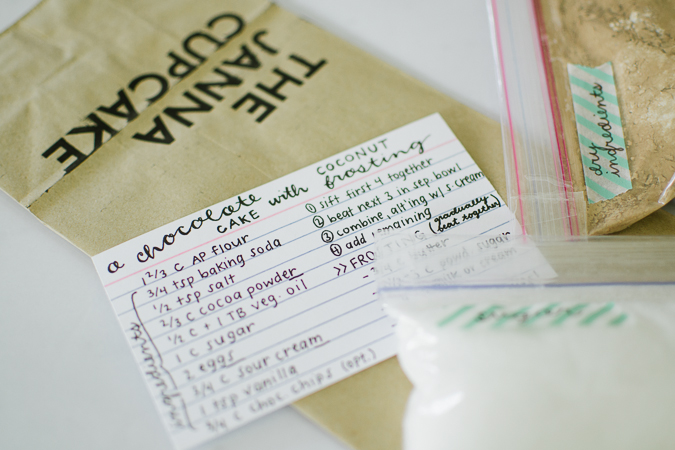 THE
JANNA
CUPCAKE
a chocolate
CAKE with COCONUT
frosting
1 2/3 C AP flour
3/4 tsp baking soda
1/2 tsp salt
2/3 C cocoa powder
1/2 C + 1 TB veg. oil
1 C sugar
2 eggs
3/4 C sour cream
1 tsp vanilla
3/4 C choc chips (opt.)
ingredients
① sift first 4 together
② beat next 3 in sep. bowl
③ combine, alt'ing w/ s. cream
④ add remaining (gradually beat together)
>> FROSTING
butter
powd. sugar
milk or cream
dry
ingredients